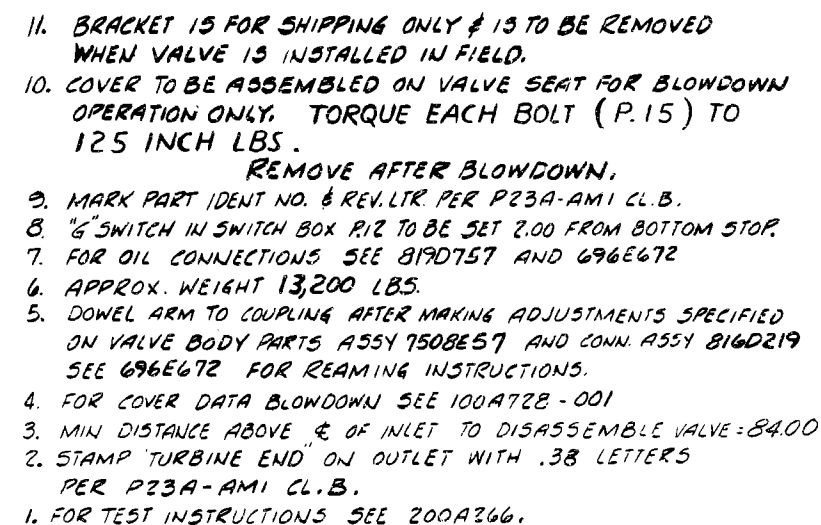 11. BRACKET IS FOR SHIPPING ONLY & IS TO BE REMOVED
WHEN VALVE IS INSTALLED IN FIELD.
10. COVER TO BE ASSEMBLED ON VALVE SEAT FOR BLOWDOWN
OPERATION ONLY. TORQUE EACH BOLT (P.15) TO
125 INCH LBS.
REMOVE AFTER BLOWDOWN.
9. MARK PART IDENT NO. & REV. LTR. PER P23A-AM1 CL.B.
8. "G" SWITCH IN SWITCH BOX P.12 TO BE SET 2.00 FROM BOTTOM STOP.
7. FOR OIL CONNECTIONS SEE 819D757 AND 696E672
6. APPROX. WEIGHT 13,200 LBS.
5. DOWEL ARM TO COUPLING AFTER MAKING ADJUSTMENTS SPECIFIED
ON VALVE BODY PARTS ASSY 7508E57 AND CONN. ASSY 816D219
SEE 696E672 FOR REAMING INSTRUCTIONS.
4. FOR COVER DATA BLOWDOWN SEE 100A728-001
3. MIN DISTANCE ABOVE ℄ OF INLET TO DISASSEMBLE VALVE=84.00
2. STAMP "TURBINE END" ON OUTLET WITH .38 LETTERS
PER P23A-AM1 CL.B.
1. FOR TEST INSTRUCTIONS SEE 200A266.